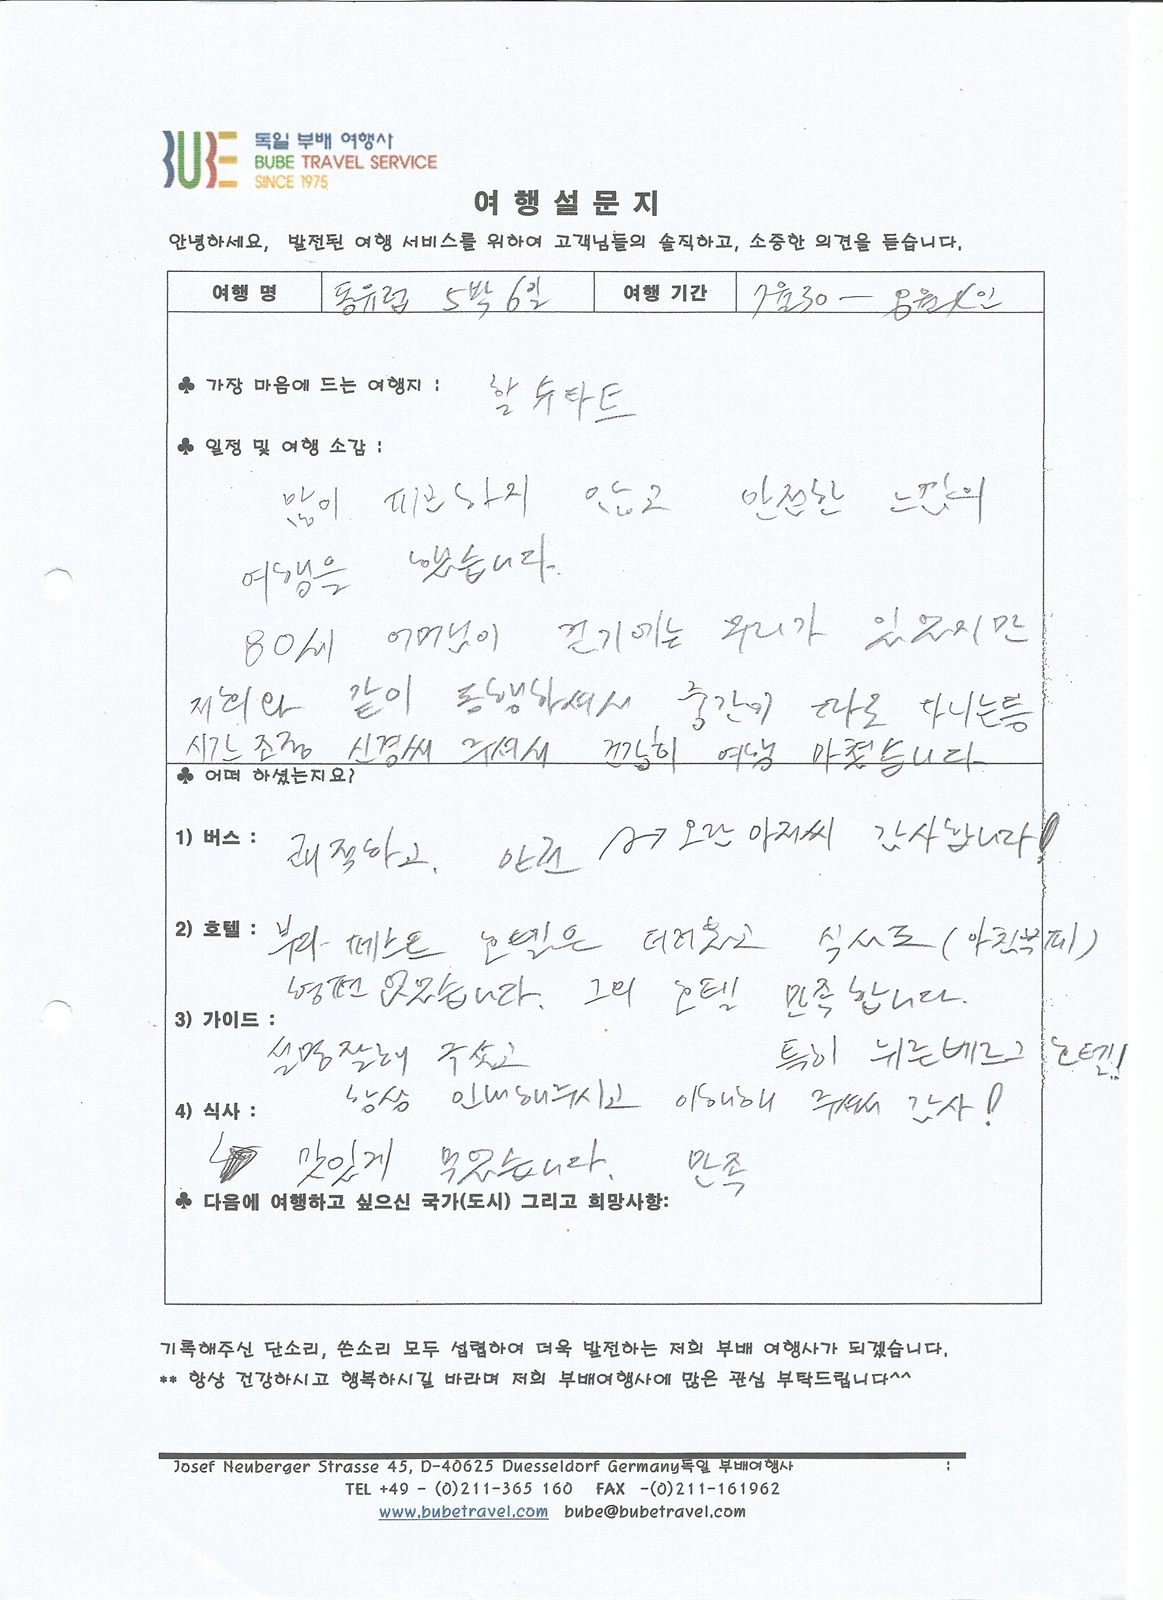 BUBE 독일 부배 여행사
BUBE TRAVEL SERVICE
SINCE 1975
여 행 설 문 지
안녕하세요, 발전된 여행 서비스를 위하여 고객님들의 솔직하고, 소중한 의견을 듣습니다.
여행 명 동유럽 5박 6일 여행 기간 7월30 — 8월4일
♣ 가장 마음에 드는 여행지 : 할슈타트
♣ 일정 및 여행 소감 :
많이 피곤하지 않고 안전한 느낌의
여행을 했습니다.
80세 어머님이 걷기에는 무리가 있었지만
저희와 같이 동행하셔서 중간에 따로 다니는등
시간조정 신경써 주셔서 건강히 여행 마쳤습니다
♣ 어떠 하셨는지요?
1) 버스 : 쾌적하고. 안전 → 오란 아저씨 감사합니다!
2) 호텔 : 부다페스트 호텔은 더러웠고 식사도 (아침부페)
형편 없었습니다. 그외 호텔 만족합니다.
3) 가이드 :
설명 잘해 주셨고 특히 뉘른베르그 호텔!!
항상 인내해주시고 이해해 주셔서 감사!
4) 식사 :
맛있게 먹었습니다. 만족
♣ 다음에 여행하고 싶으신 국가(도시) 그리고 희망사항:
기록해주신 단소리, 쓴소리 모두 섭렵하여 더욱 발전하는 저희 부배 여행사가 되겠습니다.
** 항상 건강하시고 행복하시길 바라며 저희 부배여행사에 많은 관심 부탁드립니다^^
Josef Neuberger Strasse 45, D-40625 Duesseldorf Germany독일 부배여행사 :
TEL +49 - (0)211-365 160 FAX -(0)211-161962
www.bubetravel.com bube@bubetravel.com